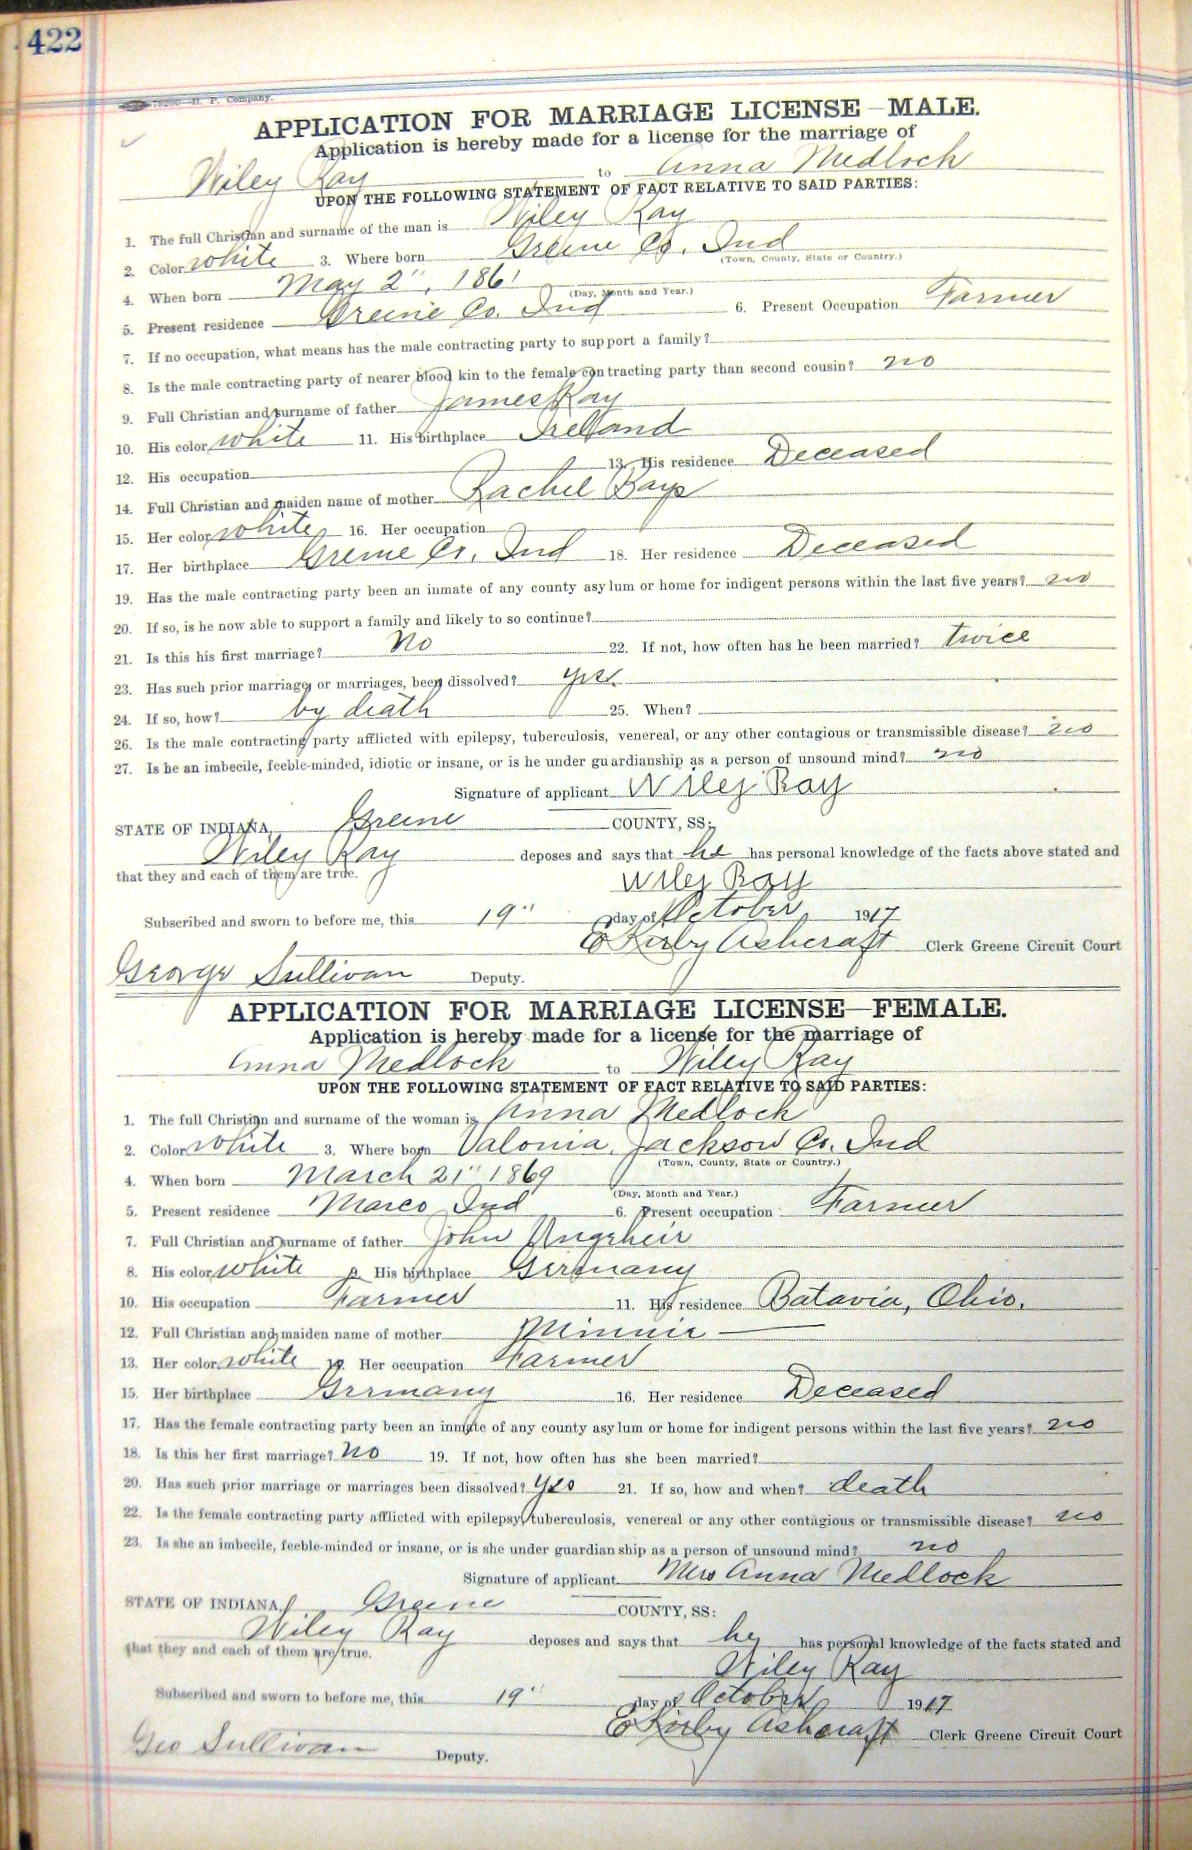 422
19200—H. P. Company.
APPLICATION FOR MARRIAGE LICENSE—MALE.
Application is hereby made for a license for the marriage of
Wiley Ray to Anna Medlock
UPON THE FOLLOWING STATEMENT OF FACT RELATIVE TO SAID PARTIES:
1. The full Christian and surname of the man is Wiley Ray
2. Color white 3. Where born Greene Co. Ind
(Town, County, State or Country.)
4. When born May 2", 1861
(Day, Month and Year.)
5. Present residence Greene Co. Ind 6. Present Occupation Farmer
7. If no occupation, what means has the male contracting party to support a family?
8. Is the male contracting party of nearer blood kin to the female contracting party than second cousin? no
9. Full Christian and surname of father James Ray
10. His color white 11. His birthplace Ireland
12. His occupation 13. His residence Deceased
14. Full Christian and maiden name of mother Rachel Bays
15. Her color white 16. Her occupation
17. Her birthplace Greene Co. Ind 18. Her residence Deceased
19. Has the male contracting party been an inmate of any county asylum or home for indigent persons within the last five years? no
20. If so, is he now able to support a family and likely to so continue?
21. Is this his first marriage? No 22. If not, how often has he been married? twice
23. Has such prior marriage, or marriages, been dissolved? yes.
24. If so, how? by death 25. When?
26. Is the male contracting party afflicted with epilepsy, tuberculosis, venereal, or any other contagious or transmissible disease? no
27. Is he an imbecile, feeble-minded, idiotic or insane, or is he under guardianship as a person of unsound mind? no
Signature of applicant Wiley Ray
STATE OF INDIANA, Greene COUNTY, SS:
Wiley Ray deposes and says that he has personal knowledge of the facts above stated and
that they and each of them are true.
Wiley Ray
Subscribed and sworn to before me, this 19" day of October, 1917
E Kirby Ashcraft Clerk Greene Circuit Court
George Sullivan Deputy.
APPLICATION FOR MARRIAGE LICENSE—FEMALE.
Application is hereby made for a license for the marriage of
Anna Medlock to Wiley Ray
UPON THE FOLLOWING STATEMENT OF FACT RELATIVE TO SAID PARTIES:
1. The full Christian and surname of the woman is Anna Medlock
2. Color white 3. Where born Valonia, Jackson Co. Ind
(Town, County, State or Country.)
4. When born March 21" 1869
(Day, Month and Year.)
5. Present residence Marco Ind 6. Present occupation Farmer
7. Full Christian and surname of father John
8. His color white 9. His birthplace Germany
10. His occupation Farmer 11. His residence Batavia, Ohio.
12. Full Christian and maiden name of mother Minnie —
13. Her color white Her occupation Farmer
15. Her birthplace Germany 16. Her residence Deceased
17. Has the female contracting party been an inmate of any county asylum or home for indigent persons within the last five years? no
18. Is this her first marriage? No 19. If not, how often has she been married?
20. Has such prior marriage or marriages been dissolved? Yes 21. If so, how and when? death
22. Is the female contracting party afflicted with epilepsy, tuberculosis, venereal or any other contagious or transmissible disease? no
23. Is she an imbecile, feeble-minded or insane, or is she under guardianship as a person of unsound mind? no
Signature of applicant Mrs Anna Medlock
STATE OF INDIANA, Greene COUNTY, SS:
Wiley Ray deposes and says that he has personal knowledge of the facts stated and
that they and each of them are true.
Wiley Ray
Subscribed and sworn to before me, this 19" day of October 1917
E Kirby Ashcraft Clerk Greene Circuit Court
Geo Sullivan Deputy.